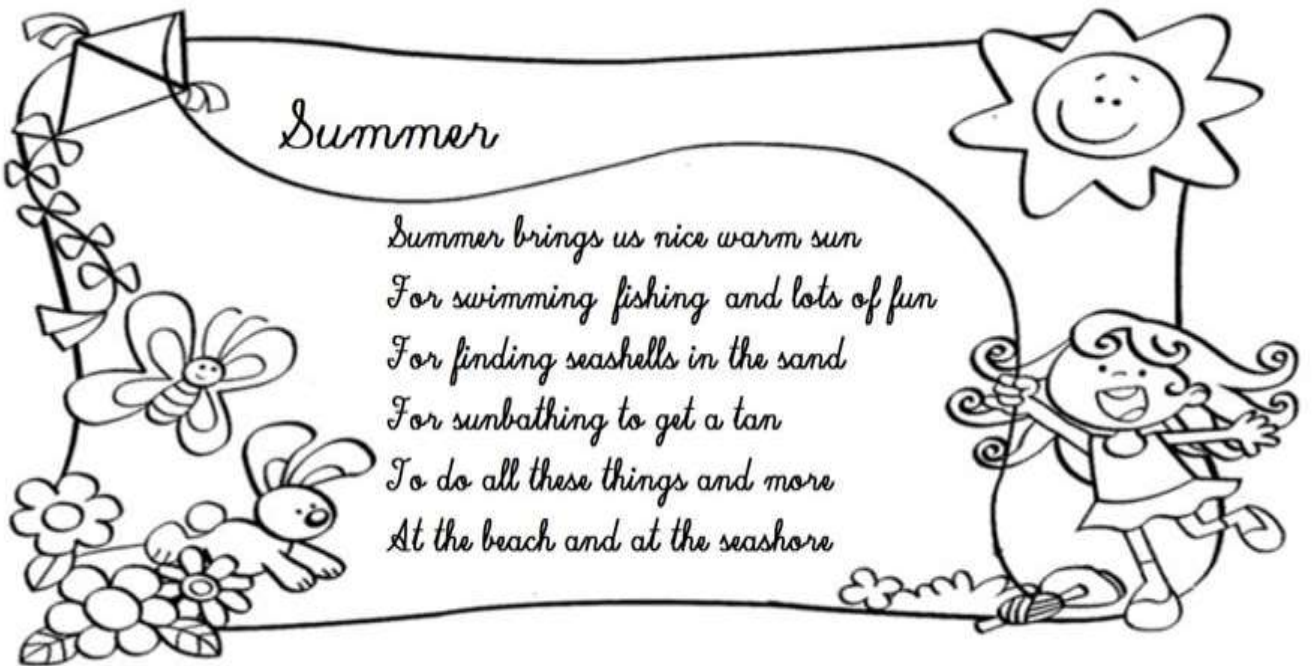 Summer
Summer brings us nice warm sun
For swimming fishing and lots of fun
For finding seashells in the sand
For sunbathing to get a tan
To do all these things and more
At the beach and at the seashore